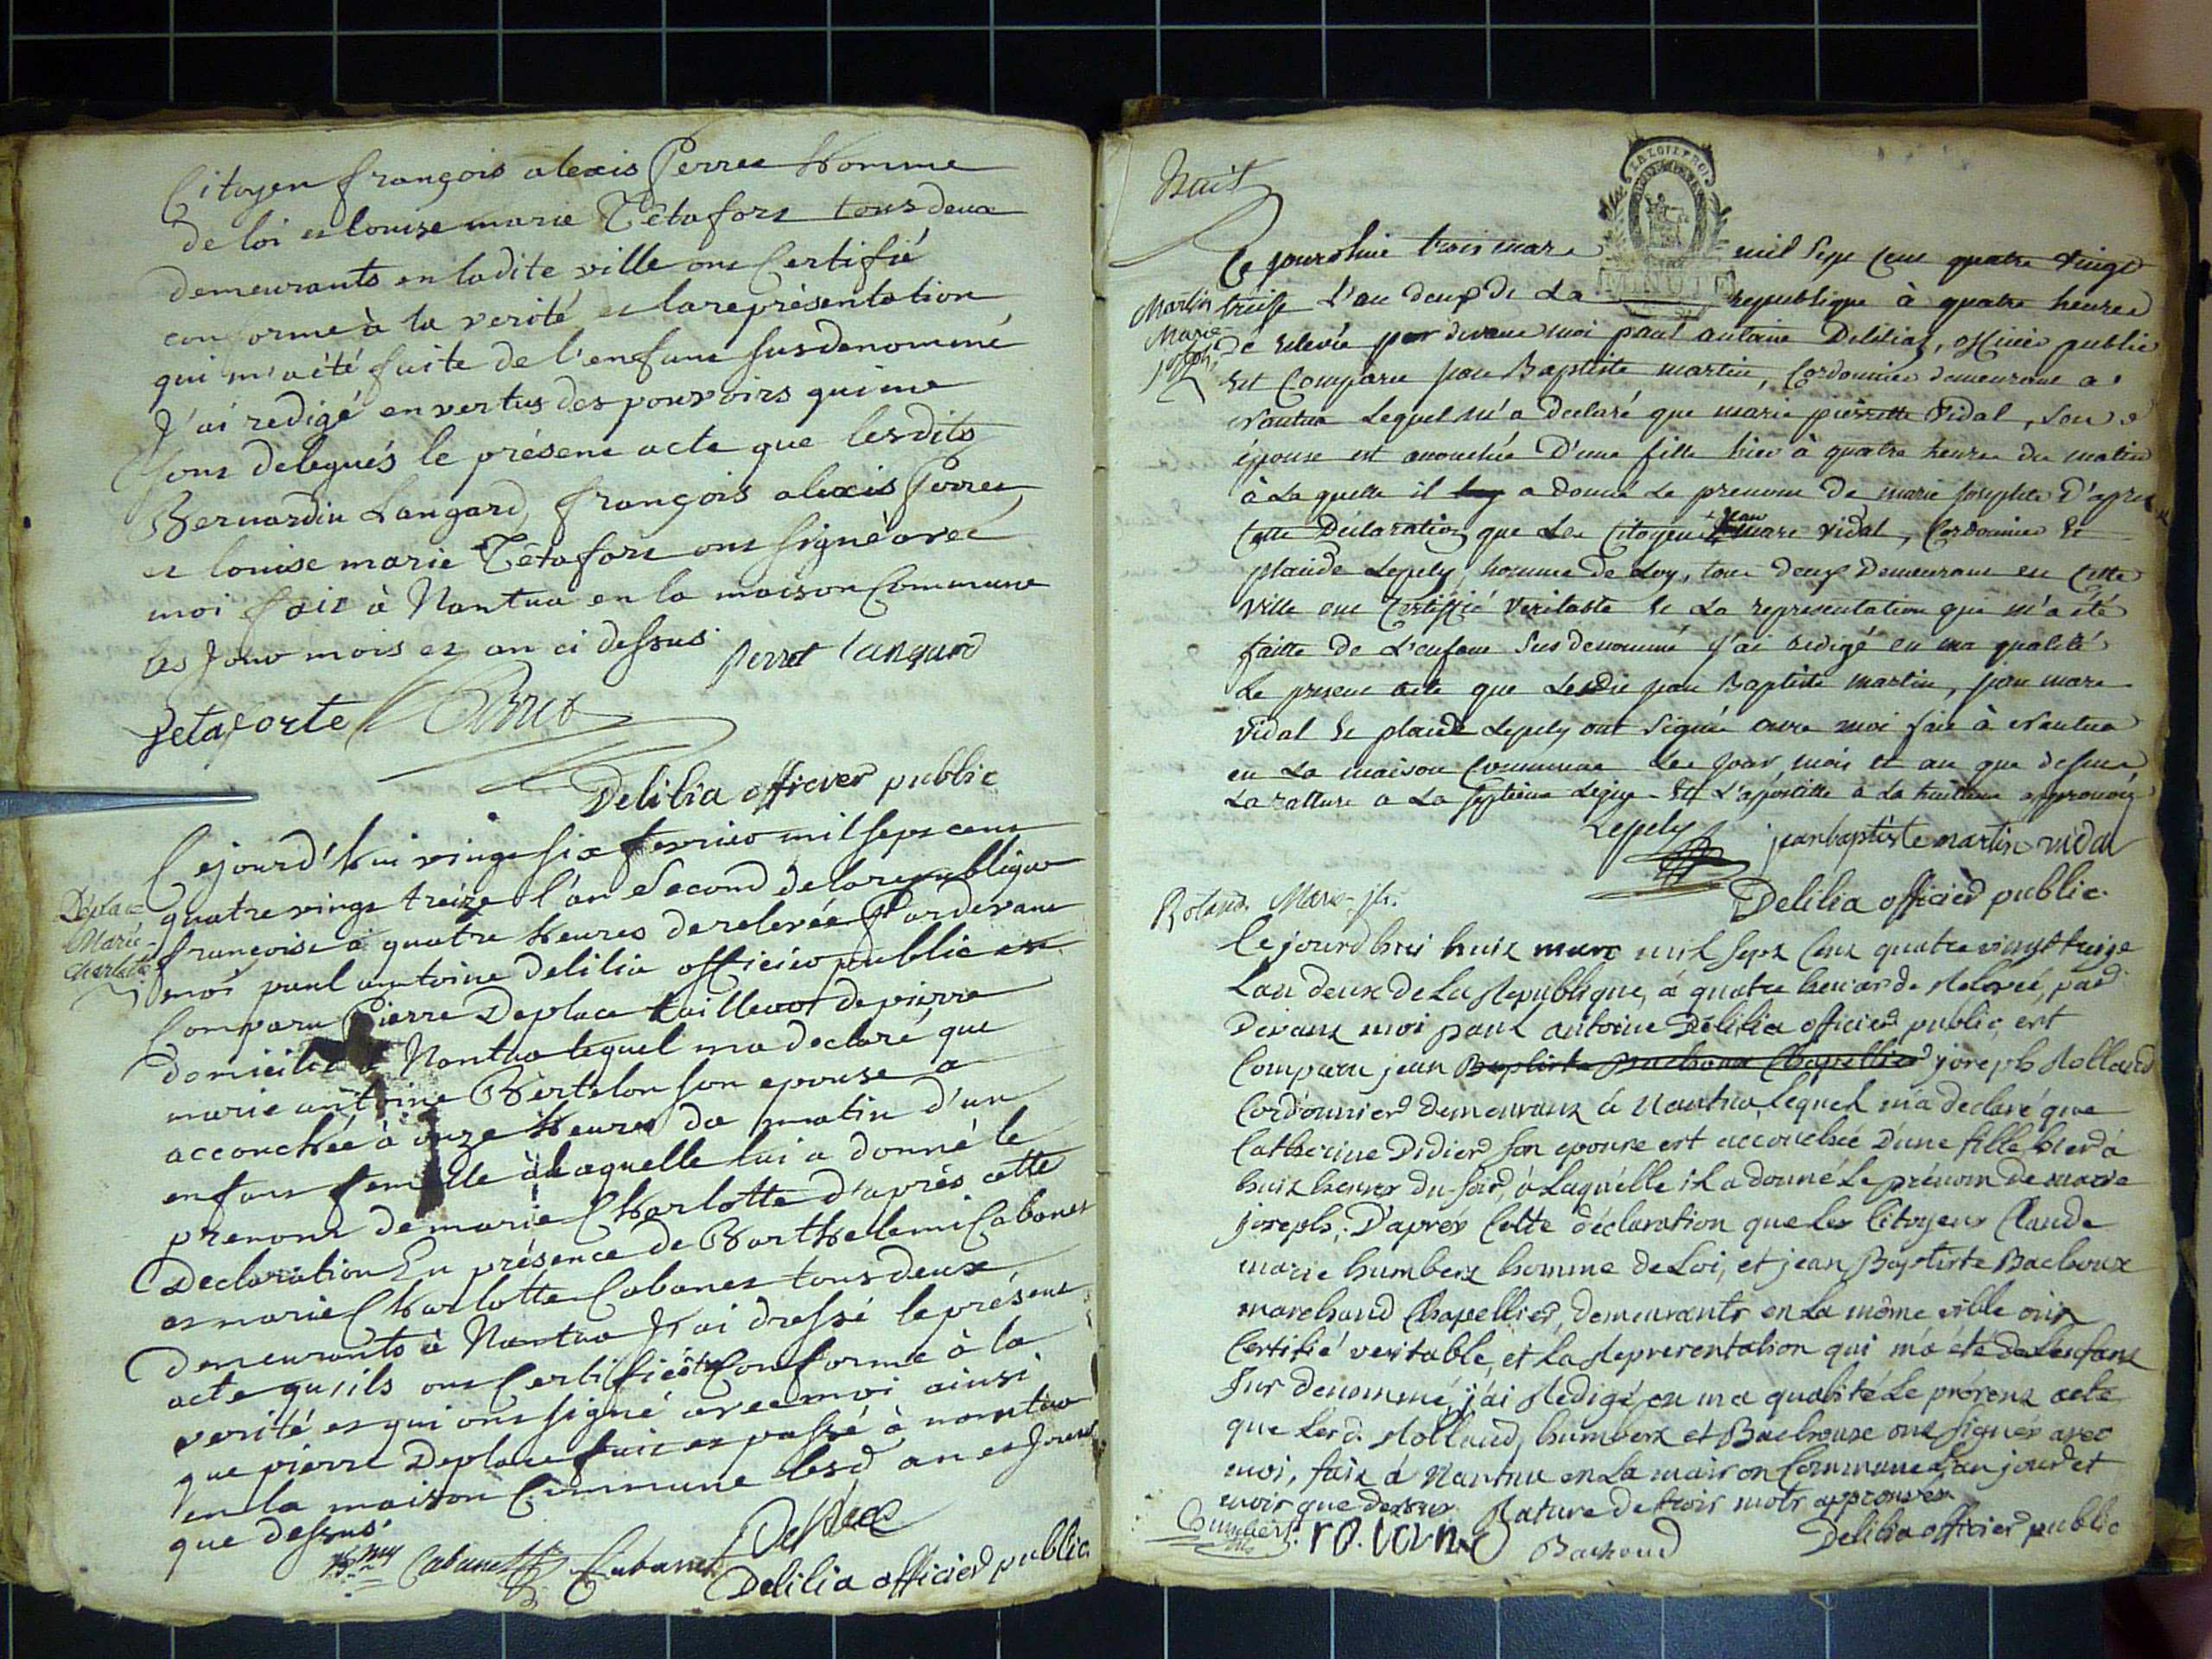 Citoyen françois alexis Perret homme
de loi et louise marie Têtafort tous deux
demeurants en ladite ville ont Certifié
conforme à la verité et la représentation
qui m'a été faite de l'enfant susdenommé
J'ai redigé en vertus des pouvoirs qui me
sont delegués le présent acte que lesdits
Bernardin Langard, françois alexis Perret
et louise marie Têtafort ont signé avec
moi fait à Nantua en la maison Commune
les Jour mois et an ci dessus.
perret langard
Delilia officier public
Ce jourd'hui vingt six fevrier mil sept cent
quatre vingt treize l'an Second de la republique
françoise à quatre heures de relevée Pardevant
moi paul antoine delilia officier public est
Comparu Pierre Deplace tailleur de pierre
domicilié à Nantua lequel m'a declaré que
marie antoine Bertelon son epouse a
accouchée à onze heures du matin d'un
enfant femelle à laquelle lui a donné le
prenom de marie Charlotte d'après cette
Declaration En présence de Barthelemi Cabanet
et marie Charlotte Cabanet tous deux
demeurants à Nantua J'ai dressé le présent
acte qu'ils ont Certifié être Conforme à la
verité et qui ont signé avec moi ainsi
que pierre Deplace fait et passé à nantua
en la maison Commune lesd an et Jour
que dessus.
Cabanet Cabanet Deplace
Delilia officier public
Deplace
Marie
Charlotte
Huit
MINUTE
Ce jourdhui trois mars mil sept cent quatre vingt
treise L'an deux de La republique à quatre heures
de relevée par devant moi paul antoine Delilia, officier public
Est Comparu jean Baptiste martin, Cordonnier demeurant a
Nantua Lequel M'a declaré que marie pierrette Vidal, son
épouse est accouchée D'une fille hier à quatre heures du matin
à La quelle il a donné Le prenom De marie Josephte D'apres
Cette Déclaration que Les Citoyens jean marc Vidal, Cordonnier Et
plaide Lepely, homme de Loy, tous deux Demeurant en Cette
Ville ont Certiffié Veritable Et La representation qui m'a été
faitte De L'enfant Susdenommé j'ai redigé en ma qualité
Le present acte que Lesdit jean Baptiste martin, jean marc
Vidal Et plaide Lepely ont Signé avec moi fait à Nantua
en La maison Commune Les jour, mois et an que dessus
La rature a La septieme Ligne Et L'apostille à La huitieme approuvés
Lepely jean baptiste martin vidal
Delilia officier public.
Martin
Marie
joseph
Roland Marie-jh.
Cejourdhui huit mars mil sept cent quatre vingt treize
Lan deux de La Republique, à quatre heures de Relevée, par
Devant moi paul antoine Delilia officier public, est
Comparu jean Baptiste Bachoux Chapellier joseph Rolland
Cordonnier demeurant à Nantua, Lequel m'a declaré que
Catherine Didier son epouse est accouchée d'une fille hier à
huit heures du soir, à Laquelle il a donné Le prénom de marie
joseph; D'aprés Cette déclaration que les Citoyens Claude
marie humbert homme de Loi, et jean Baptiste Bachoux
marchand Chapellier, demeurants en La même ville ont
Certifié veritable, et La Representation qui m'a été de L'enfant
sus denommé, j'ai Redigé en ma qualité Le présent acte
que Lesd. Rolland, humbert et Bachoux ont signés avec
moi, fait à Nantua en La maison Commune L'an jour et
mois que dessus Rature de trois mots approuvés
humbert ro.land Bachoud
Delilia officier public